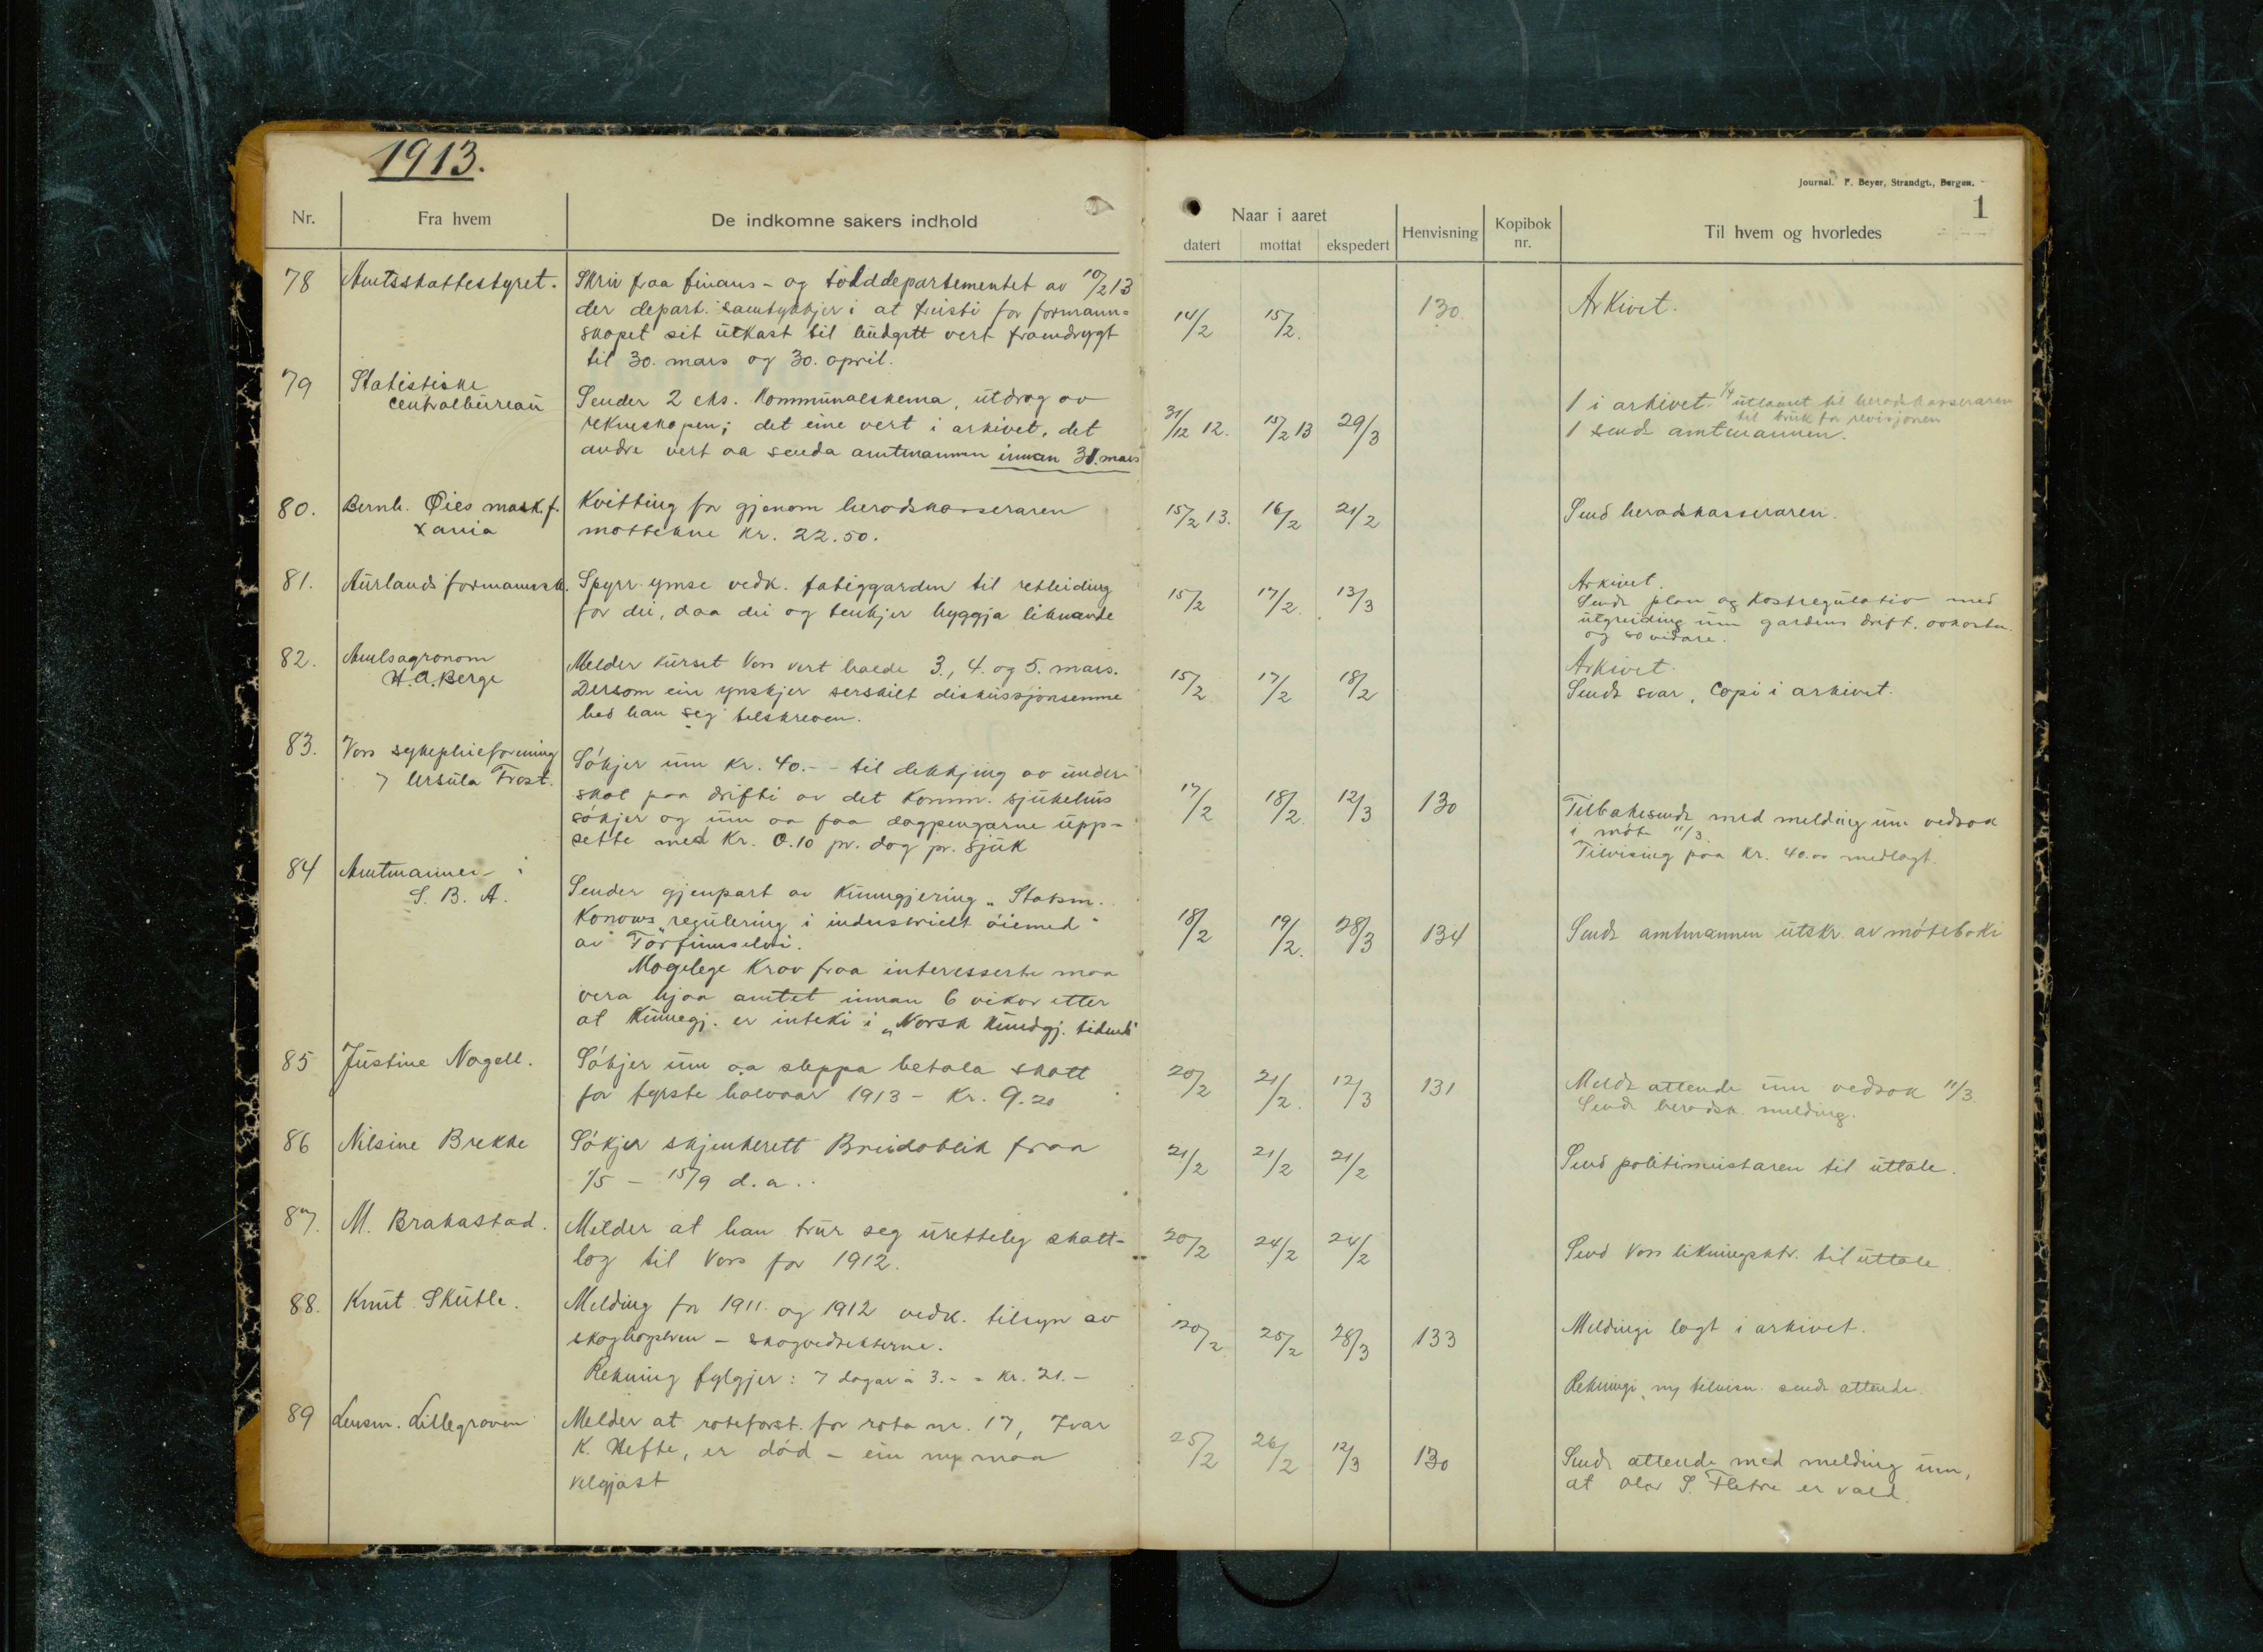 1913.
Journal. F. Beyer, Strandgt., Bergen.
1
Nr.
Fra hvem
De indkomne sakers indhold
Naar i aaret
datert
mottat
ekspedert
Henvisning
Kopibok nr.
Til hvem og hvorledes
78
Amtsskattestyret.
Skriv fraa finans- og tolddepartementet av 10/2 13
der depart. samtykkjer i at fristi for formann=
skapet sit utkast til budgett vert framdrygt
til 30. mars og 30. april.
14/2
15/2.
130.
Arkivet.
79
Statistiske
centralbureau
Sender 2 eks. kommunalskema, utdrag av
rekneskapen; det eine vert i arkivet, det
andre vert aa senda amtmannen innan 31. mars
31/12 12.
15/2 13
29/3
1 i arkivet. 1/4 utlaant til heradskasseraren
til bruk for revisjonen
1 sendt amtmannen.
80.
Bernh. Øies mask.f.
Xania
Kvitting for gjenom heradskasseraren
mottekne kr. 22.50.
15/2 13.
16/2
21/2
Send heradskasseraren.
81.
Aurlands formannsk.
Spyrr ymse vedk. fatiggarden til retleiding
for dei, daa dei og tenkjer byggja liknande
15/2
17/2.
13/3
Arkivet.
Sendt plan og kostregulativ med
utgreiding um gardens drift, avkastn.
og so vidare.
82.
Amtsagronom
H.A. Berge
Melder kurset Voss vert halde 3., 4. og 5. mars.
Dersom ein ynskjer serskilt diskussjonsemne
bed han seg tilskreven.
15/2
17/2
18/2
Arkivet.
Sendt svar, Copi i arkivet.
83.
Vors sykepleieforening
v Ursula Frost.
Søkjer um kr. 40.- - til dekkjing av under-
skot paa drifti av det komm. sjukehus
søkjer og um aa faa dagpengarne upp=
sette med kr. 0.10 pr. dag pr. sjuk
17/2
18/2.
12/3
130
Tilbakesendt med melding um vedtak
i møt 11/3.
Tilvising paa kr. 40.00 medlagt.
84
Amtmannen i
S. B. A.
Sender gjenpart av kunngjering "Statsm.
Konows "regulering i industrielt øiemed"
av Torfinnselvi.
Mogelege krav fraa interesserte maa
vera hjaa amtet innan 6 vikor etter
at kunngj. er inteki i "Norsk kundgj. tidende"
18/2
19/2.
28/3
134
Sendt amtmannen utskr. av møteboki
85
Justine Nagell.
Søkjer um aa sleppa betala skatt
for fyrste halvaar 1913 - kr. 9.20
20/2
21/2.
12/3
131
Meldt attende um vedtak 11/3.
Sendt heradsk. melding.
86
Nilsine Brekke
Søkjer skjenkerett Breidablik fraa
1/5 - 15/9 d.a..
21/2
21/2
21/2
Send politimeistaren til uttale.
87.
M. Brakastad.
Melder at han trur seg uretteleg skatt-
lag til Vors for 1912.
20/2
24/2
24/2
Send Vors likningsktr. til uttale
88.
Knut Skutle.
Melding for 1911 og 1912 vedk. tilsyn av
skoghogstren - skogvedtekterne.
Rekning fylgjer: 7 dagar à 3.- = kr. 21.-
20/2
25/2
28/3
133
Meldingi lagt i arkivet.
Rekningi, my tilvisn. sendt attende.
89
Lensm. Lillegraven
Melder at roteforst. for rota nr. 17, Ivar
K. Hefte, er død - ein ny maa
veljast
25/2
26/2
12/3
130
Sendt attende med melding um,
at Olav S. Fletre er vald.